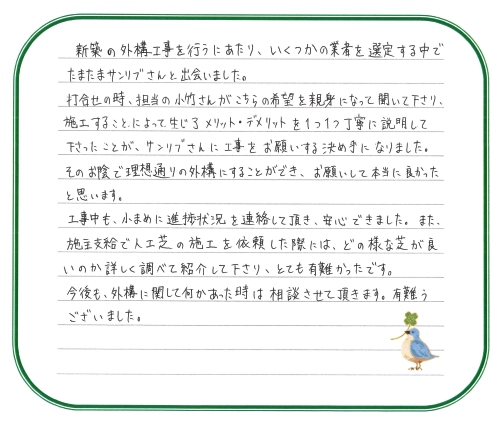 新築の外構工事を行うにあたり、いくつかの業者を選定する中で
たまたまサンリブさんと出会いました。
打合せの時、担当の小竹さんがこちらの希望を親身になって聞いて下さり、
施工することによって生じるメリット・デメリットを1つ1つ丁寧に説明して
下さったことが、サンリブさんに工事をお願いする決め手になりました。
そのお陰で理想通りの外構にすることができ、お願いして本当に良かった
と思います。
工事中も、小まめに進捗状況を連絡して頂き、安心できました。また、
施主支給で人工芝の施工を依頼した際には、どの様な芝が良
いのか詳しく調べて紹介して下さり、とても有難かったです。
今後も、外構に関して何かあった時は相談させて頂きます。有難う
ございました。